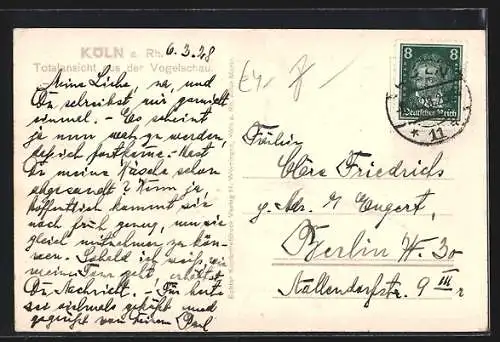 KÖLN a. Rh.
Totalansicht aus der Vogelschau.
6.3.28
Meine Liebe, na, und
Du schreibst, nur
einmal. - Es scheint
ja nun wahr zu werden,
daß ich fortkomme. - Hast
Du meine Wäsche schon
abgesandt? Wenn ja,
hoffentlich kommt sie
noch früh genug, um sie
gleich mitnehmen zu kön-
nen. Sobald ich weiß, wie
meine Tour geht, erhältst
Du Nachricht. - Für heute
sei vielmals geküßt und
gegrüßt von Deinem
8 8
Deutsches Reich
* 11
Fräulein
Friedrichs
b. Engert,
Berlin W. 30
Nollendorfstr. 9 III r